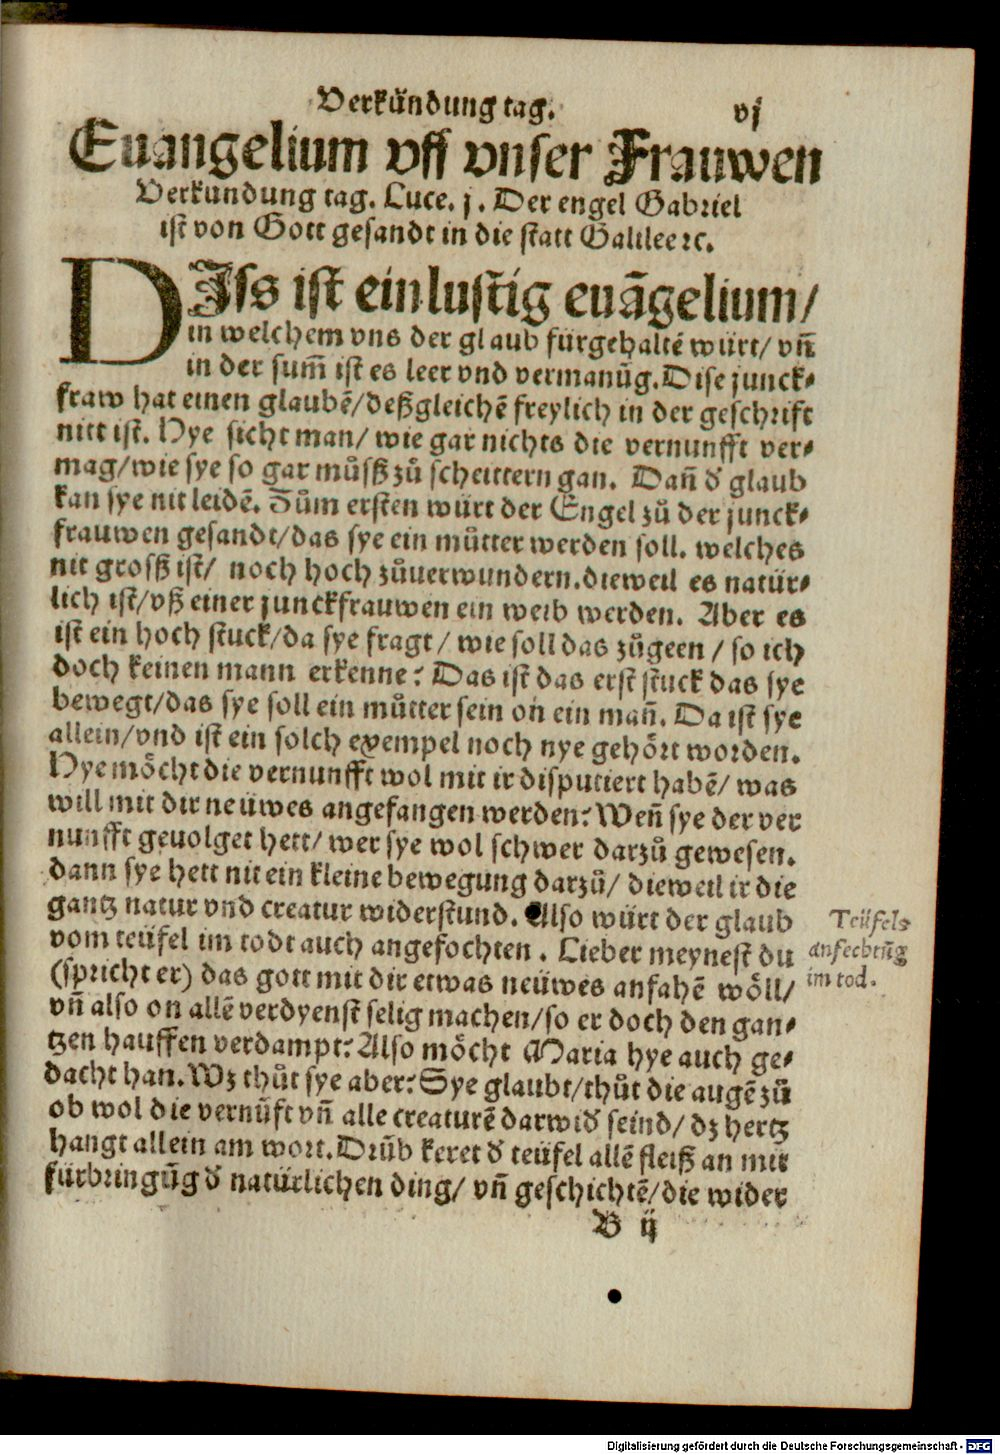 Verkündung tag. vj
Euangelium vff vnser Frauwen
Verkundung tag. Luce. j. Der engel Gabriel
ist von Gott gesandt in die statt Galilee ꝛc.
DIss ist ein lustig euãgelium/
in welchem vns der glaub fürgehaltẽ würt/ vñ
in der sum̃ ist es leer vnd vermanũg. Dise junck⸗
fraw hat einen glaubẽ/deßgleichẽ freylich in der geschrifft
nitt ist. Hye sicht man/ wie gar nichts die vernunfft ver⸗
mag/wie sye so gar můsß zů scheittern gan. Dañ d̕ glaub
kan sye nit leidẽ. Zům ersten würt der Engel zů der junck⸗
frauwen gesandt/das sye ein můtter werden soll. welches
nit grosß ist/ noch hoch zůuerwundern.dieweil es natür⸗
lich ist/vß einer junckfrauwen ein weib werden. Aber es
ist ein hoch stuck/da sye fragt/ wie soll das zůgeen/ so ich
doch keinen mann erkenne? Das ist das erst stuck das sye
bewegt/das sye soll ein můtter sein on ein mañ. Da ist sye
allein/vnd ist ein solch exempel noch nye gehört worden.
Hye möcht die vernunfft wol mit ir disputiert habẽ/ was
will mit dir neüwes angefangen werden? Weñ sye der ver
nunfft geuolget hett/ wer sye wol schwer darzů gewesen.
dann sye hett nit ein kleine bewegung darzů/ dieweil ir die
gantz natur vnd creatur widerstund. Also würt der glaub
vom teüfel im todt auch angefochten. Lieber meynest du
(spricht er) das gott mit dir etwas neüwes anfahẽ wöll/
vñ also on allẽ verdyenst selig machen/so er doch den gan⸗
tzen hauffen verdampt? Also möcht Maria hye auch ge⸗
dacht han. Wz thůt sye aber? Sye glaubt/thůt die augẽ zů
ob wol die vernũft vñ alle creaturẽ darwid̕ seind/ dz hertz
hangt allein am wort. Drũb keret d̕ teüfel allẽ fleiß an mit
fürbringũg d̕ natürlichen ding/ vñ geschichtẽ/die wider
Teüfels
anfechtũg
im tod.
B ij
Digitalisierung gefördert durch die Deutsche Forschungsgemeinschaft - DFG